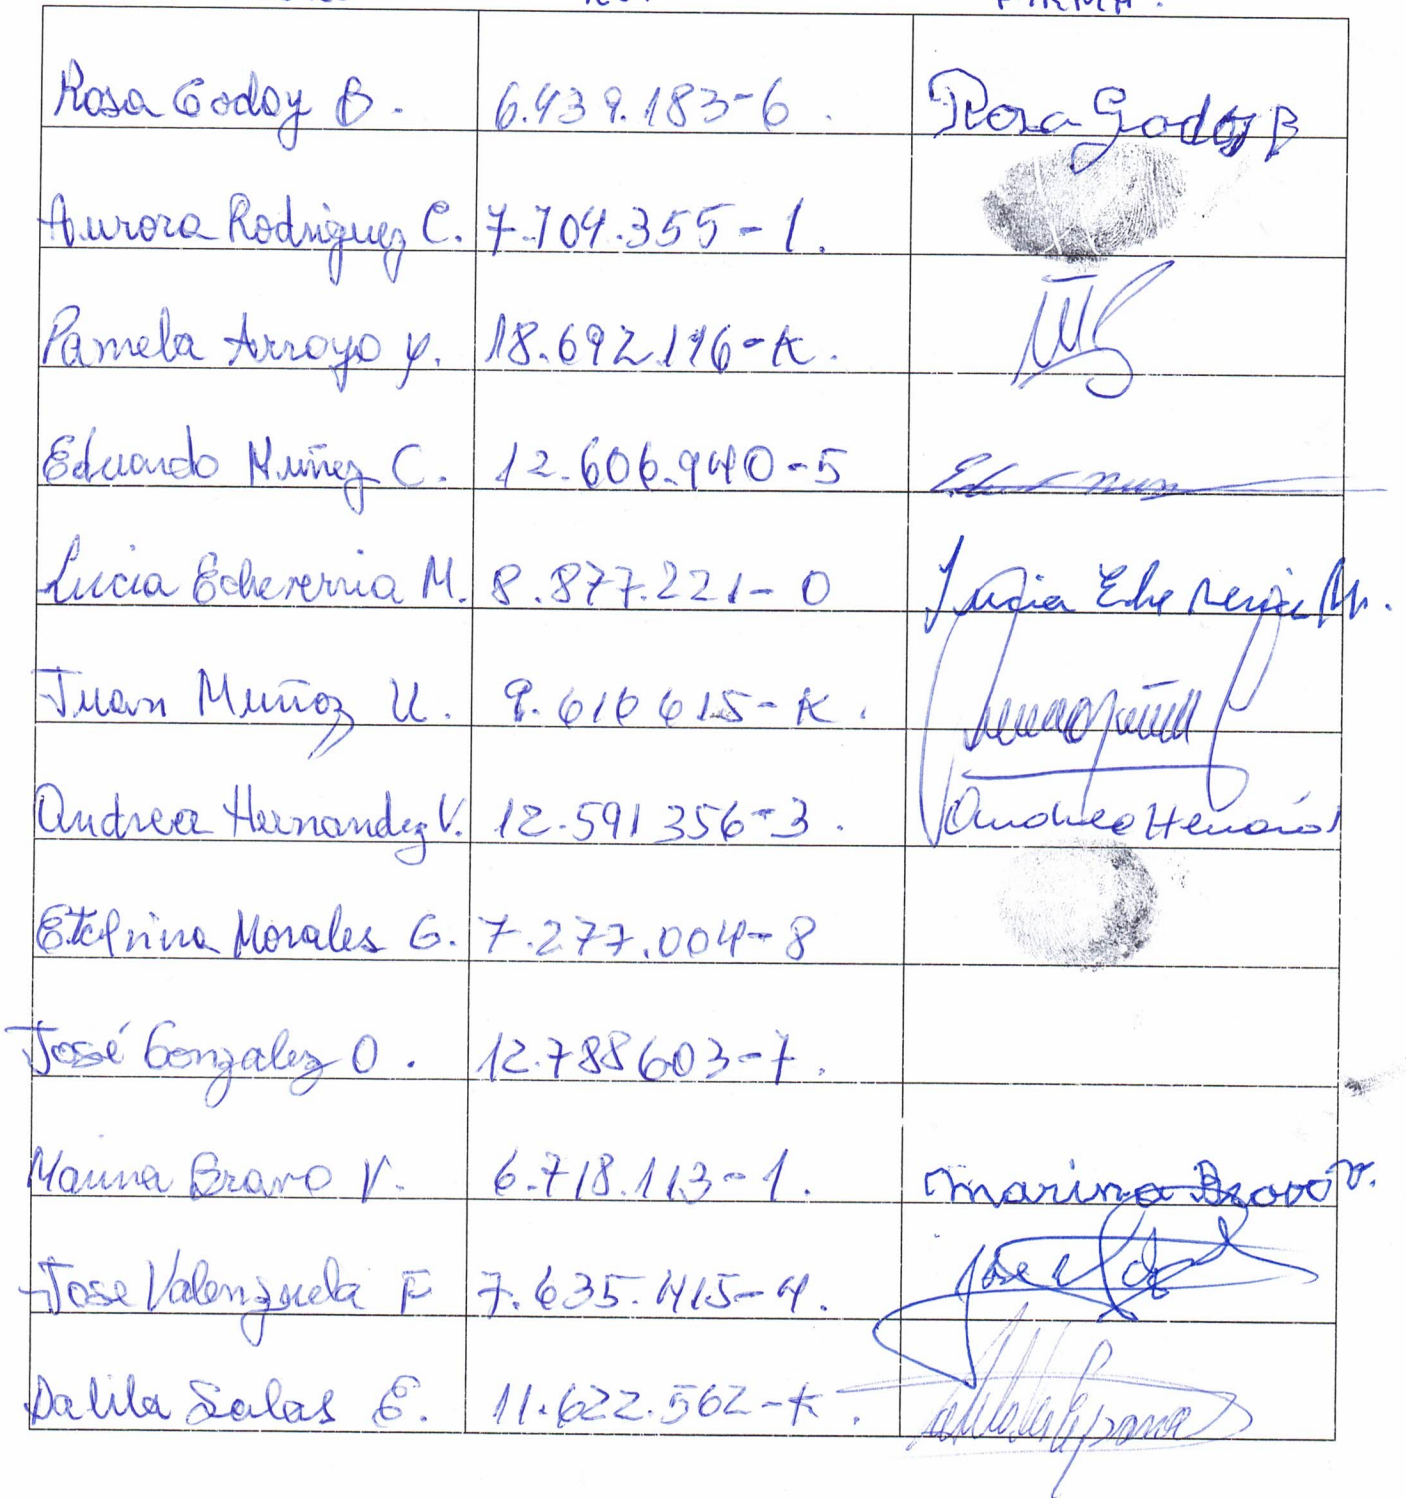 FIRMA.
Rosa Godoy B. 6.439.183-6. Rosa Godoy B
Aurora Rodriguez C. 7.704.355-1.
Pamela Arroyo y. 18.692.116-K.
Eduardo Muñoz C. 12.606.940-5
Lucia Echeverria M. 8.877.221-0 Lucia Echeverria M.
Juan Muñoz U. 9.616615-K.
Andrea Hernandez V. 12.591356-3. Andrea
Etelvina Morales G. 7.277.004-8
José Gonzalez O. 12.788603-7.
Marina Bravo V. 6.718.113-1. Marina Bravo V.
Jose Valenzuela F 7.635.415-4. Jose
Dalila Salas E. 11.622.562-K.